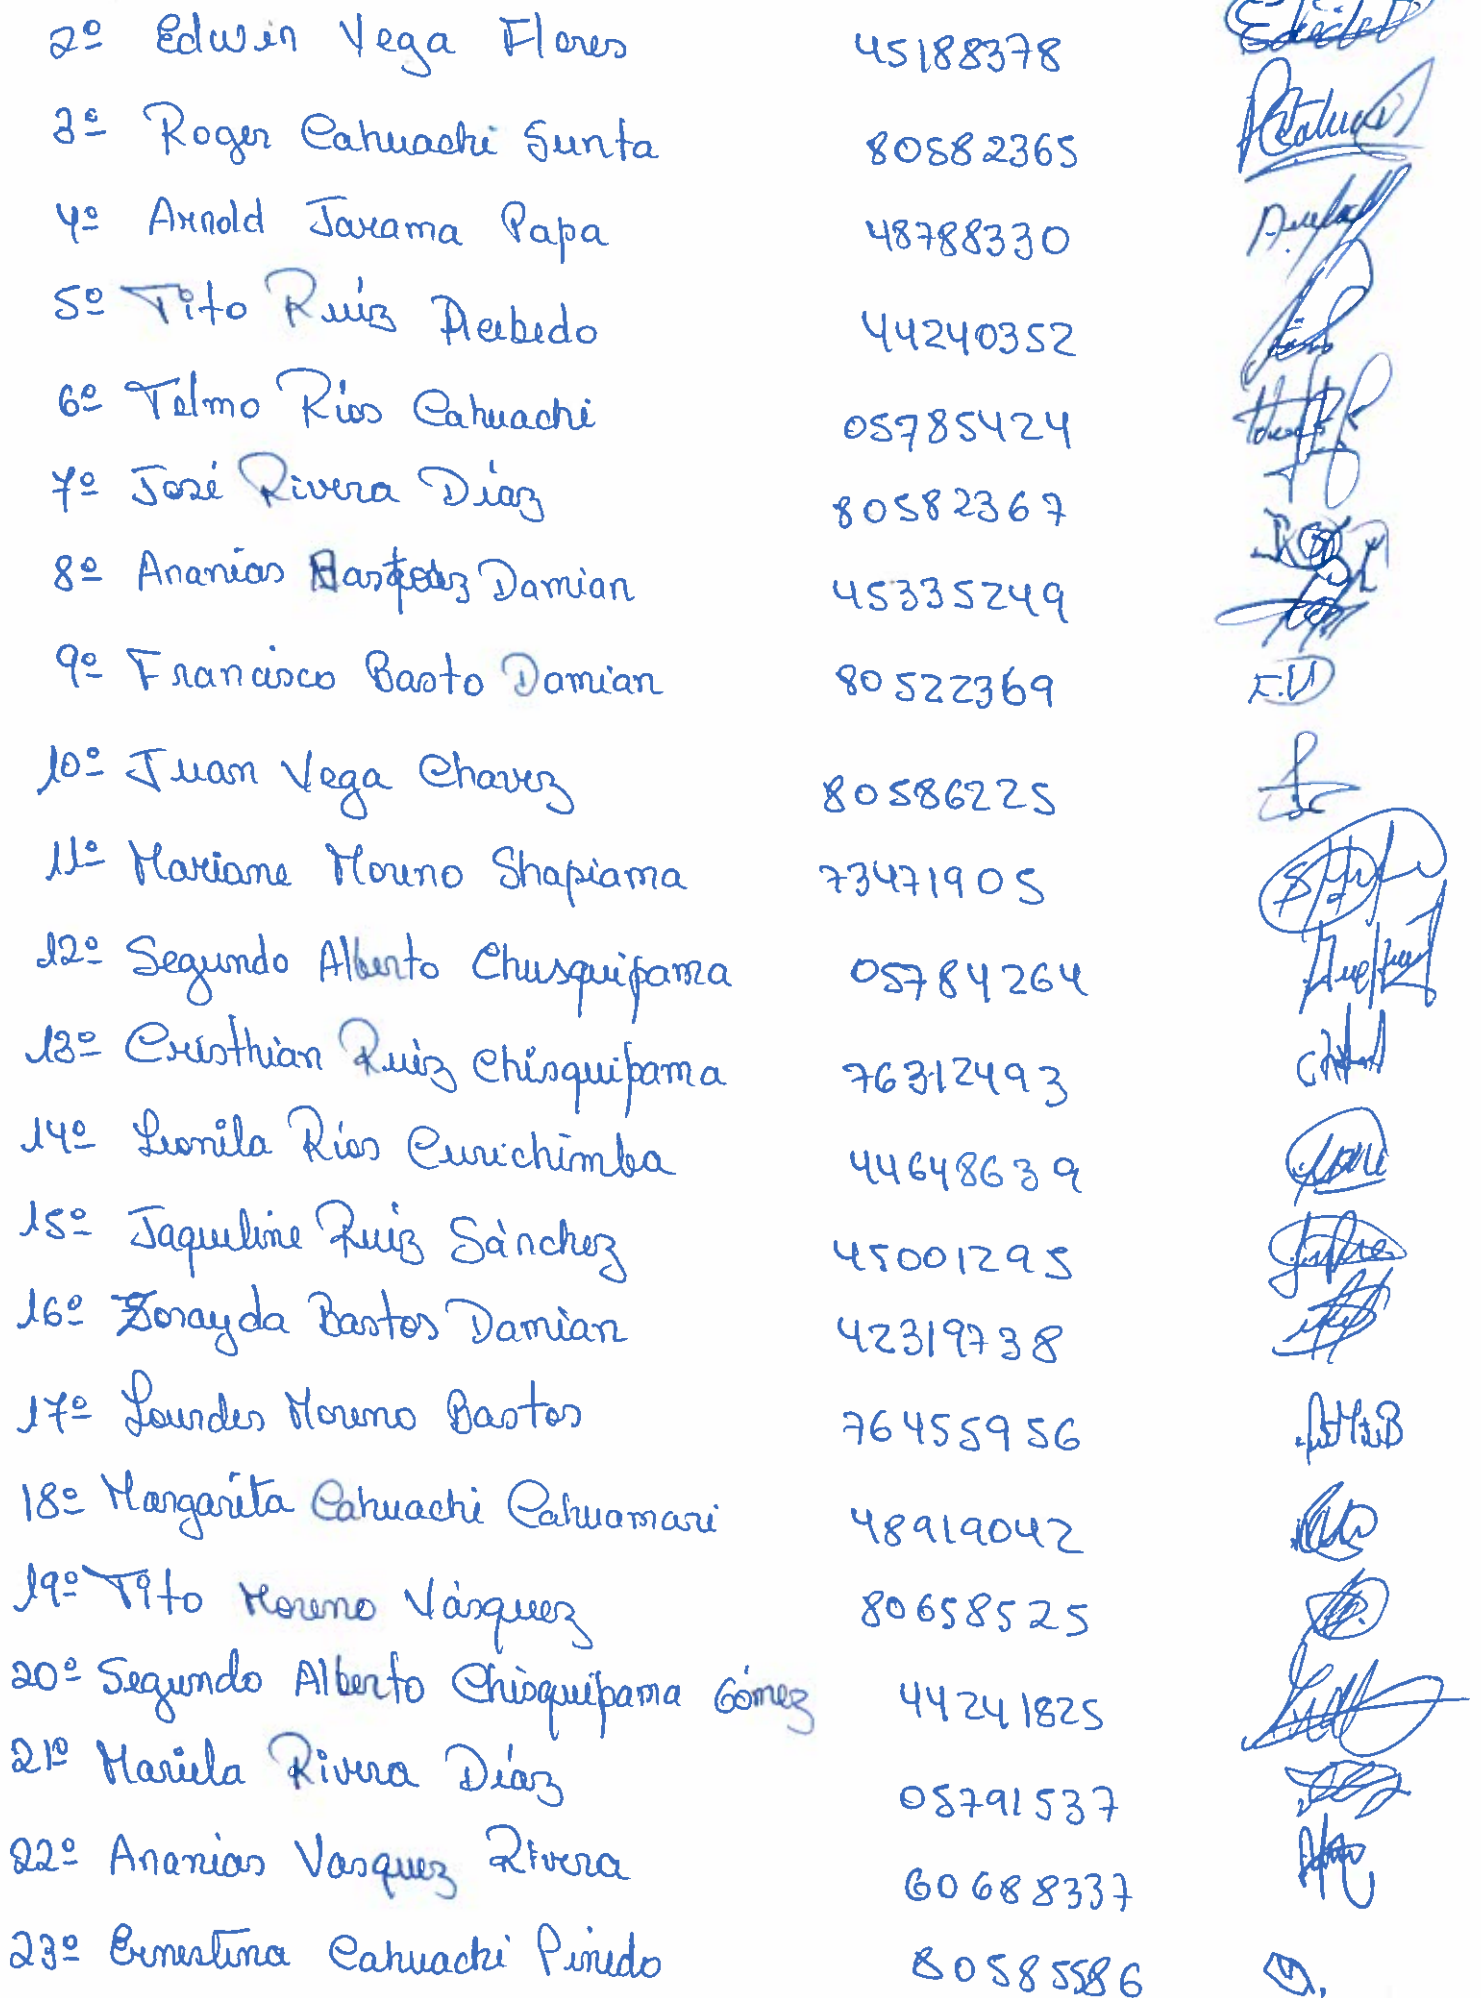 2º Edwin Vega Flores 45188378
3º Roger Cahuachi Sunta 80582365
4º Arnold Jarama Papa 48788330
5º Tito Ruíz Acebedo 44240352
6º Telmo Ríos Cahuachi 05785424
7º José Rivera Díaz 80582367
8º Ananías Damian 45335249
9º Francisco Basto Damian 80522369
10º Juan Vega Chavez 80586225
11º Mariane Moreno Shapiama 73471905
12º Segundo Alberto Chusquipama 05784264
13º Cristhian Ruiz Chisquipama 76312493
14º Leonila Ríos Curichimba 44648639
15º Jaqueline Ruiz Sànchez 45001295
16º Zorayda Bastos Damian 42319738
17º Lourdes Moreno Bastos 76455956
18º Margarita Cahuachi Cahuamari 48919042
19º Tito Moreno Vásquez 80658525
20º Segundo Alberto Chisquipama Gómez 44241825
21º Mariela Rivera Díaz 05791537
22º Ananias Vasquez Rivera 60688337
23º Ernestina Cahuachi Pinedo 80585586